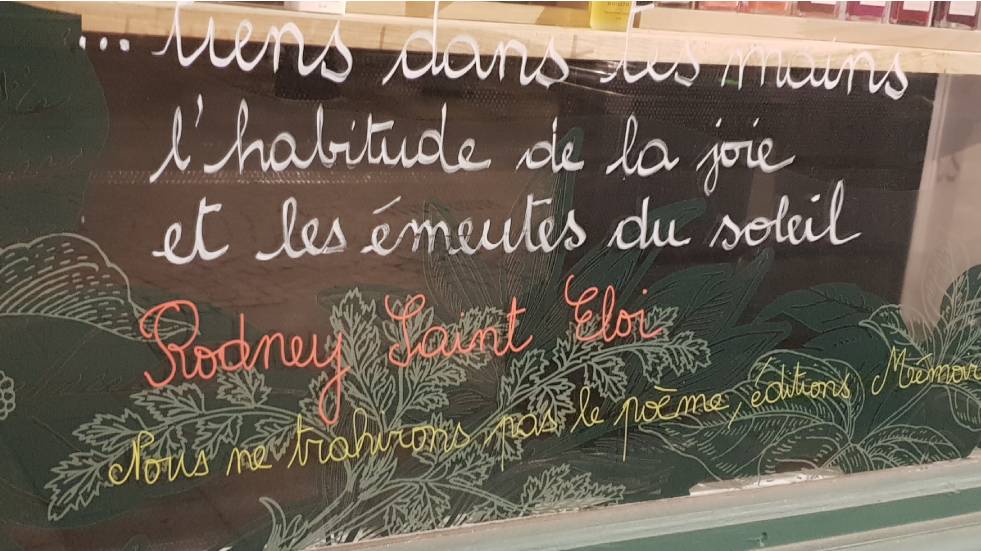 ... tiens dans tes mains
l'habitude de la joie
et les émeutes du soleil
Rodney Saint Eloi
Nous ne trahirons pas le poème, éditions Mémoi